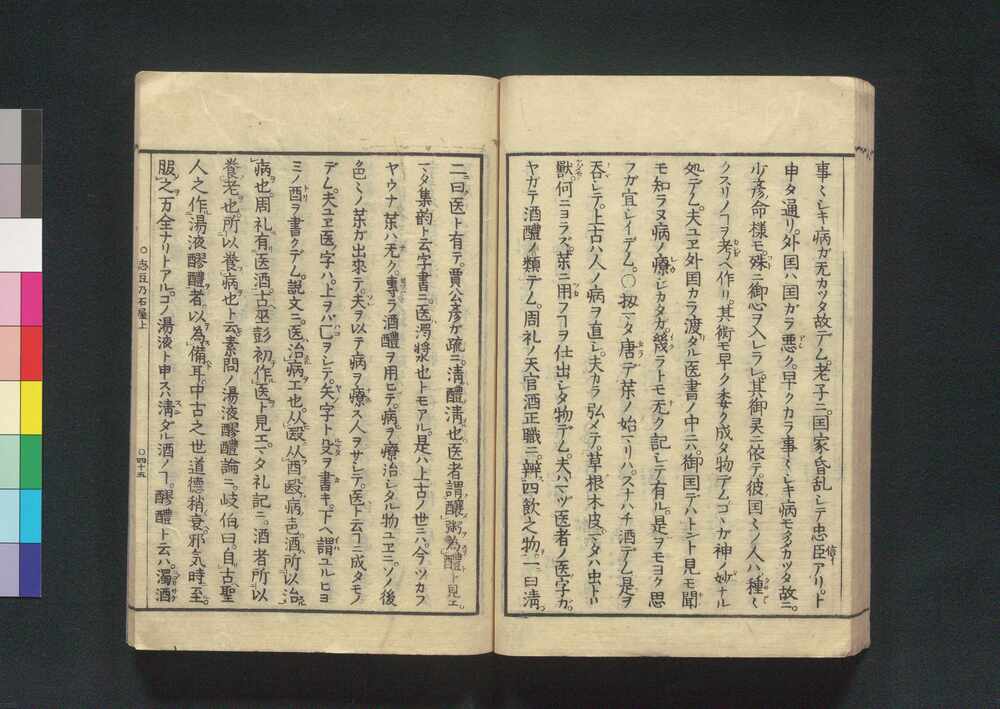 事〻シキ病ガ无カツタ故デム。老子ニ。国家昏乱シテ忠臣アリ。ト
申タ通リ。外国ハ国ガラ悪ク。早クカラ事〻シキ病モ多カツタ故ニ。
少彦命様モ。殊ニ御心ヲ入レラレ。其御灵ニ依テ。彼国〻ノ人ハ種〻
クスリノヿヲ考ヘ作リ。其術モ早ク委ク成タ物デム。ゴヽガ神ノ妙ナル
処デム。夫ユヱ外国カラ渡タル医書ノ中ニハ。御国テハトント見モ聞
モ知ラヌ病ノ療シカタガ。幾ラトモ无ク記シテ有ル。是ヲモヨク思
フガ宜シイデム。〇扨マタ唐デ薬ノ始マリハ。スナハチ酒デム。是ヲ
呑シテ。上古ハ人ノ病ヲ直シ。夫カラ弘メテ。草根木皮マタハ虫トリ
獣何ニヨラズ。薬ニ用フヿヲ仕出シタ物デム。夫ハマヅ医者ノ医字ガ。
ヤガテ酒醴ノ類デム。周礼ノ天官酒正職ニ。辨四飲之物。一曰清。
二曰医ト有テ。賈公彦ガ疏ニ。清醴清也。医者謂釀粥為醴ト見エ。
マタ集韵ト云字書ニ。医濁漿也トモアル。是ハ上古ノ世ニハ。今ツカフ
ヤウナ薬ハ无ク。専ラ酒醴ヲ用ヒテ。病ヲ療治シタル物ユヱニ。ソノ後
色〻ノ薬ガ出來テ。夫ヲ以テ病ヲ療ス人ヲサシテ。医ト云フヿニ成タモノ
デム。夫ユヱ医ノ字ハ。上ヲバ匸ヲシテ。矢字ト殳ヲ書キ。下ヘ謂ユルヒヨ
ミノ酉ヲ書クデム。説文ニ。医治病工也。从殹从酉。殹病声。酒所以治
病也。周礼有医酒。古巫彭初作医ト見エ。マタ礼記ニ。酒者所以
養老也。所以養病也ト云。素問ノ湯液醪醴論ニ。岐伯曰。自古聖
人之作湯液醪醴者。以為備耳。中古之世道德稍衰。邪気時至。
服之万全ナリトアル。ゴノ湯液ト申スハ。清ダル酒ノヿ。醪醴ト云ハ。濁酒
〇志豆乃石屋上
〇四十五